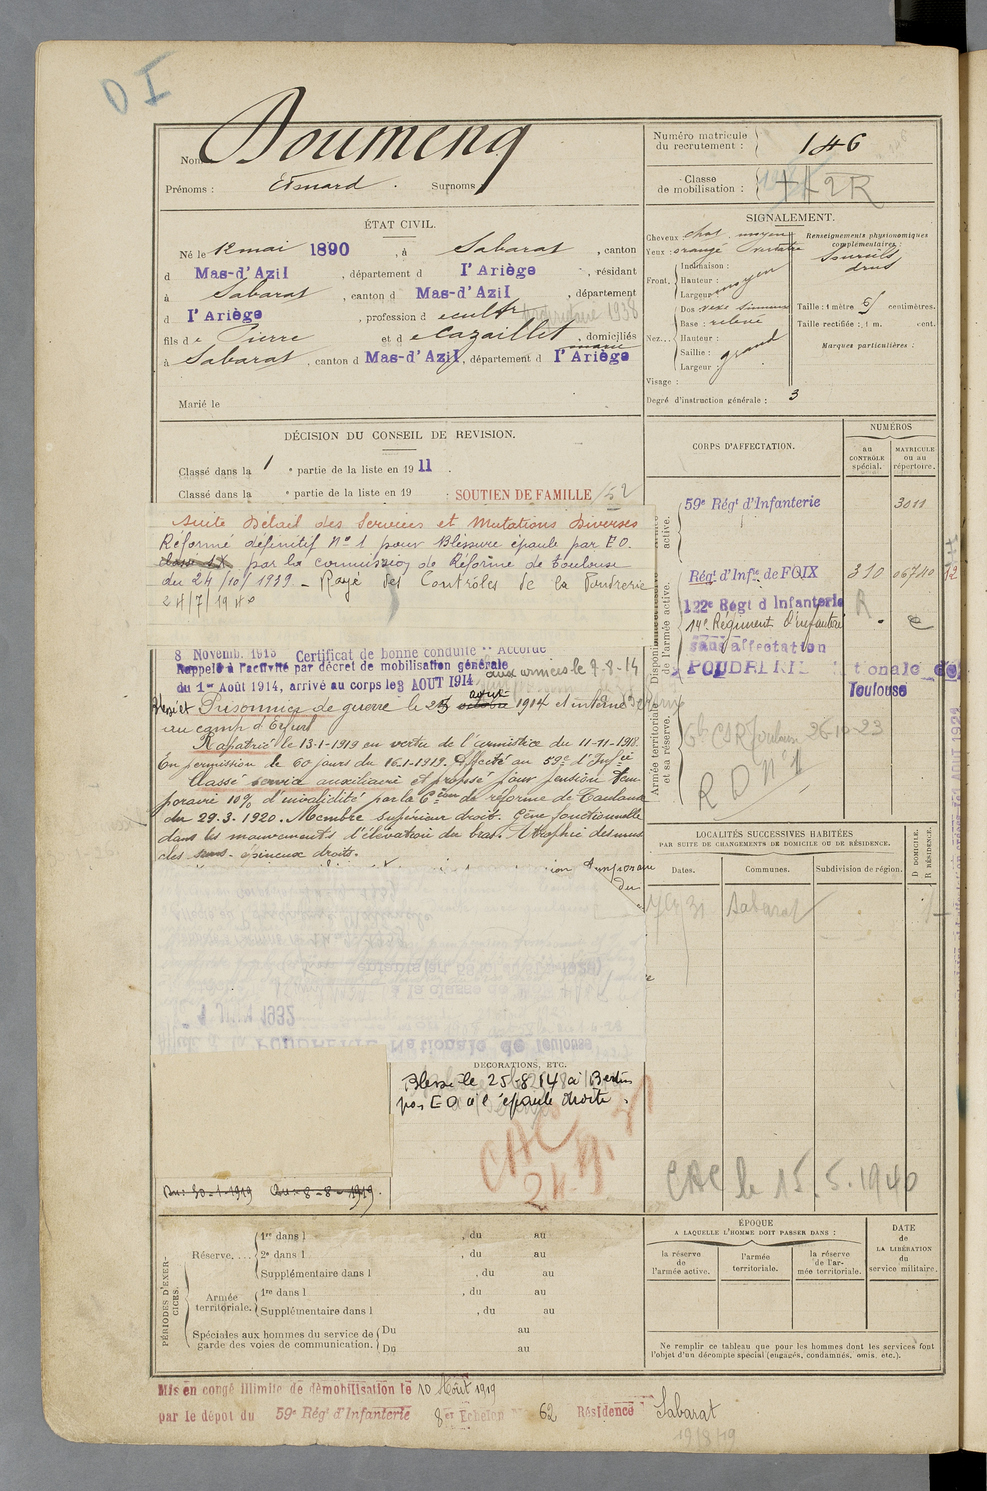 O I
Nom Doumenq
Prénoms : Edouard. Surnoms
Numéro matricule du recrutement : 146
Classe de mobilisation :
ÉTAT CIVIL.
Né le 12 mai 1890, à Sabarat, canton
d Mas-d'Azil, département d l'Ariège, résidant
à Sabarat, canton d Mas-d'Azil, département
d l'Ariège, profession d ecultr 1938
fils de Pierre et de Cazaillet, domiciliés
à Sabarat, canton d Mas-d'Azil, département d l'Ariège
Marié le
SIGNALEMENT.
Cheveux : chat. moyen
Yeux : orangé
Front. Inclinaison :
Hauteur : moyen
Largeur :
Nez... Dos : vexe sinueux
Base : relevé
Hauteur :
Saillie : grand
Largeur :
Visage :
Degré d'instruction générale : 3
Renseignements physionomiques complémentaires :
Sourcils
drus
Taille : 1 mètre 65 centimètres.
Taille rectifiée : 1 m. cent.
Marques particulières :
DÉCISION DU CONSEIL DE REVISION.
Classé dans la 1 e partie de la liste en 1911.
Classé dans la e partie de la liste en 19 : SOUTIEN DE FAMILLE /52
Suite Détail des Services et Mutations Diverses
Réformé définitif No 1 pour Blessure épaule par E O.
par la commission de Réforme de Toulouse
du 24/10/1939 - Rayé des Contrôles de la Poudrerie
24/7/1940
8 Novemb. 1913 Certificat de bonne conduite "Accordé"
Rappelé à l'activité par décret de mobilisation générale
du 1er Août 1914, arrivé au corps le 3 AOUT 1914 aux armées le 9-8-14
Blessé et Prisonnier de guerre le 25 octobre août 1914 et interné
au camp d'Erfurt
Rapatrié le 13-1-1919 en vertu de l'armistice du 11-11-1918.
En permission de 60 jours du 16-1-1919. Affecté au 59e d'Infie
Classé service auxiliaire et proposé pour pension tem
poraire 10% d'invalidité par la Cion de réforme de Toulouse
du 29.3.1920. Membre supérieur droit. Gêne fonctionnelle
dans les mouvements d'élévation du bras. Atrophie des mus
cles sous-épineux droits.
1 JUIN 1932
POUDRERIE Nationale de Toulouse
CORPS D'AFFECTATION.
NUMÉROS
au CONTRÔLE spécial.
MATRICULE ou au répertoire.
59e Régt d'Infanterie 3011
Régt d'Infie de FOIX 310 06740
122e Régt d'Infanterie R
14e Régiment d'infanterie
Sans affectation
POUDRERIE Nationale de
Toulouse
26-10-23
R D No 1
Armée territoriale et sa réserve.
Disponibilité et réserve de l'armée active.
LOCALITÉS SUCCESSIVES HABITÉES
PAR SUITE DE CHANGEMENTS DE DOMICILE OU DE RÉSIDENCE.
Dates. Communes. Subdivision de région.
D DOMICILE. R RÉSIDENCE.
Sabarat
DÉCORATIONS, ETC.
Blessé le 25-8-14 à Bertrix
par E O à l'épaule droite.
CAC
CAC le 15.5.1940
Du : 30-1-1919 Au : 8-8-1919.
PÉRIODES D'EXERCICES.
Réserve.... 1re dans l , du au
2e dans l , du au
Supplémentaire dans l , du au
Armée territoriale. 1re dans l , du au
Supplémentaire dans l , du au
Spéciales aux hommes du service de garde des voies de communication. Du au
Du au
ÉPOQUE
A LAQUELLE L'HOMME DOIT PASSER DANS :
la réserve de l'armée active.
l'armée territoriale.
la réserve de l'armée territoriale.
DATE DE LA LIBÉRATION du service militaire.
Ne remplir ce tableau que pour les hommes dont les services font
l'objet d'un décompte spécial (engagés, condamnés, omis, etc.).
Mis en congé illimité de démobilisation le 10 Août 1919
par le dépôt du 59e Régt d'Infanterie 8e Echelon 62 Résidence Sabarat
19/8/19